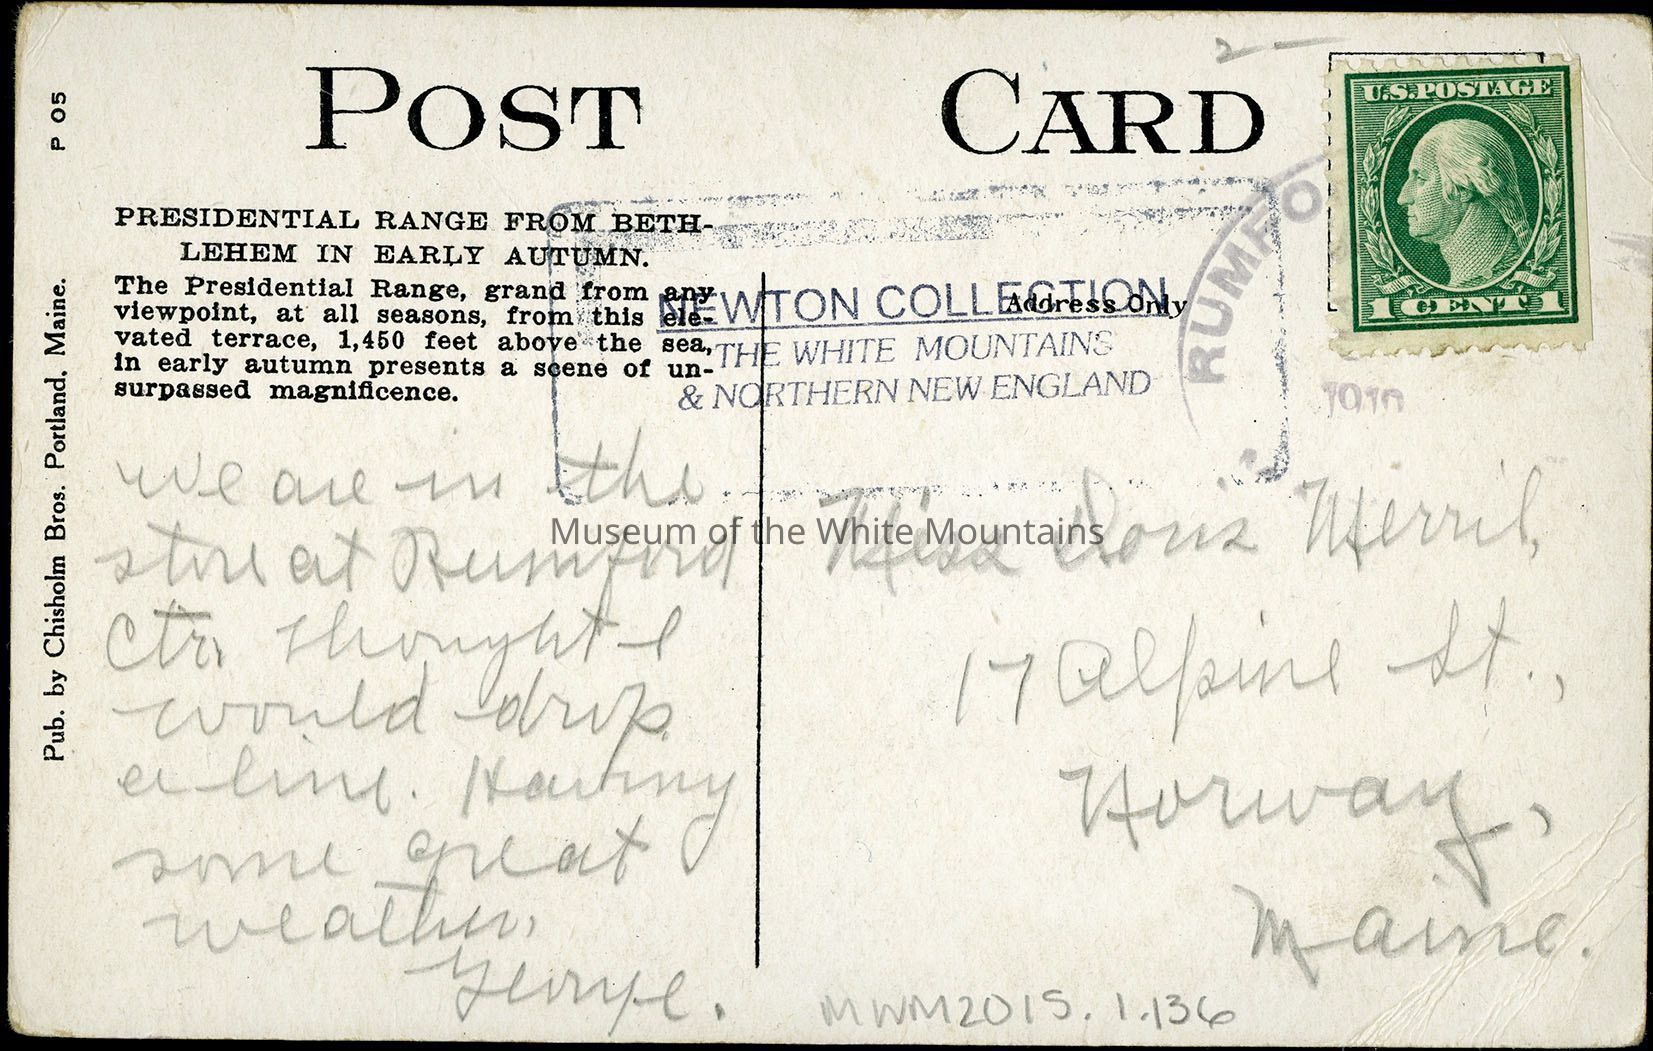 POST CARD
U.S.POSTAGE
1 CENT 1
P 05
Pub. by Chisholm Bros. Portland, Maine.
PRESIDENTIAL RANGE FROM BETH-
LEHEM IN EARLY AUTUMN.
The Presidential Range, grand from any
viewpoint, at all seasons, from this ele-
vated terrace, 1,450 feet above the sea,
in early autumn presents a scene of un-
surpassed magnificence.
NEWTON COLLECTION
THE WHITE MOUNTAINS
& NORTHERN NEW ENGLAND
Address Only
RUMFO
we are in the
store at Rumford
Ctr. thought I
would drop
a line. Having
some great
weather,
George.
Museum of the White Mountains
Miss Doris Merril,
17 Alpine St.,
Norway,
Maine.
MWM2015.1.136